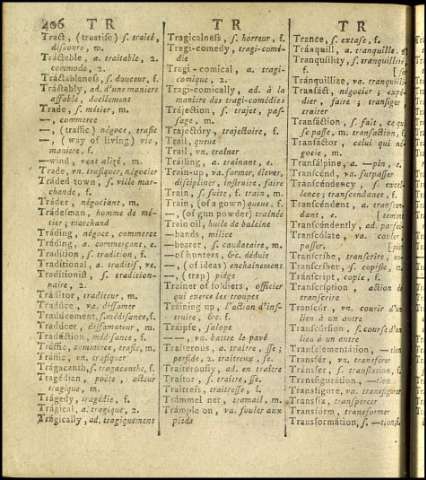 406 TR TR TR
Tract, (treatise) s. traité,
discours, m.
Tractable, a. traitable, 2.
commode, 2.
Tractableness, s. douceur, f.
Tractably, ad. d'une maniere
affable, docilement
Trade, s. métier, m.
—, commerce
—, (traffic) négoce, trafic
—, (way of living) vie,
maniere, f.
—wind, vent alizé, m.
Trade, vn. trafiquer, négocier
Traded town, s. ville mar-
chande, f.
Trader, négociant, m.
Trademan, homme de mé-
tier, marchand
Trading, négoce, commerce
Trading, a. commerçant, e.
Tradition, s. tradition, f.
Traditional, a. traditif, ve.
Traditionist, s. tradition-
naire, 2.
Traditor, traditeur, m.
Traduce, va. diffamer
Traducement, s. médisance, f.
Traducer, diffamateur, m.
Traduction, médisance, f.
Traffic, commerce, trafic, m.
Traffic, vn. trafiquer
Tragacanth, s. tragacanthe, f.
Tragedian, poëte, acteur
tragique, m.
Tragedy, tragédie, f.
Tragical, a. tragique, 2.
Tragically, ad. tragiquement
Tragicalness, s. horreur, f.
Tragi-comedy, tragi-comé-
die
Tragi-comical, a. tragi-
comique, 2.
Tragi-comically, ad. à la
maniere des tragi-comédies
Trajection, s. trajet, pas-
sage, m.
Trajectory, trajectoire, f.
Trail, queue
Trail, vn. traîner
Trailing, a. traînant, e.
Train-up, va. former, élever,
discipliner, instruire, faire
Train, s. suite, f. train, m.
Train, (of a gown) queue, f.
—, (of gun powder) traînée
Train oil, huile de baleine
—bands, milice
—bearer, s. caudataire, m.
—of hunters, &c. déduit
—, (of ideas) enchaînement
—, (trap) piége
Trainer of soldiers, officier
qui exerce les troupes
Training up, s. l'action d'ins-
truire, &c. f.
Traipse, salope
—, vn. battre le pavé
Traiterous, a. traître, sse;
perfide, 2. traîtreux, se.
Traiterously, ad. en traître
Traitor, s. traître, sse.
Traitress, traîtresse, f.
Trammel net, tramail, m.
Trample on, va. fouler aux
pieds
Trance, s. extase, f.
Tranquill, a. tranquille, 2.
Tranquillity, s. tranquillité,
f.
Tranquillize, va. tranquill.
Transact, négocier, expé-
dier, faire; transiger
traiter
Transaction, s. fait, ce qui
se passe, m. transaction, f.
Transactor, celui qui né-
gocie, m.
Transalpine, a. —pin, e.
Transcend, va. surpasser
Transcendency, s. excel-
lence; transcendance, f.
Transcendent, a. transcen-
dant, e.
Transcendently, ad. parfai-
Transcolate, va. couler,
passer
Transcribe, transcrire,
Transcriber, s. copiste, m.
Transcript, copie, f.
Transcription, action de
transcrire
Trancur, vn. courir d'un
lieu à un autre
Transcursion, s. course d'un
lieu à un autre
Transelementation, —tion
Transfer, va. transférer
Transfer, s. transfusion, f.
Transfiguration, —tion
Transfigure, va. transfigurer
Transfix, transpercer
Transform, transformer
Transformation, s. —tion, f.